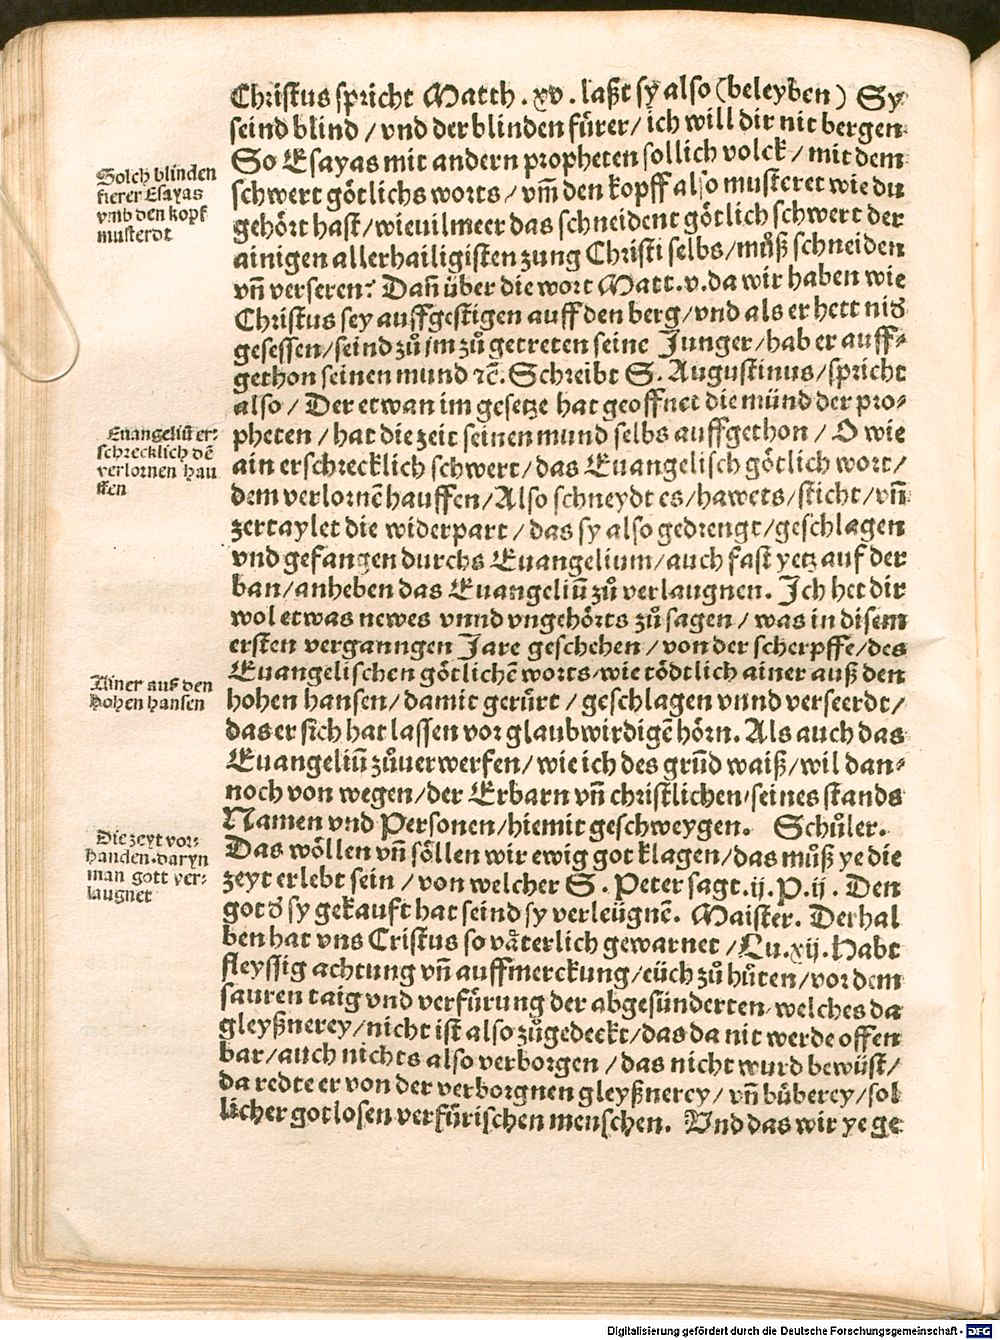 Christus spricht Matth. xv. laßt sy also (beleyben) Sy
seind blind / vnd der blinden fürer / ich will dir nit bergen
So Esayas mit andern propheten sollich volck / mit dem
schwert götlichs worts / vm̄ den kopff also musteret wie du
gehört hast / wieuil meer das schneident götlich schwert der
ainigen allerhailigisten zung Christi selbs / můß schneiden
vn̄ verseren? Dan̄ über die wort Matt. v. da wir haben wie
Christus sey auffgestigen auff den berg / vnd als er hett nid
gesessen / seind zů jm zů getreten seine Junger / hab er auff-
gethon seinen mund ꝛc̄. Schreibt S. Augustinus / spricht
also / Der etwan im gesetze hat geoffnet die münd der pro-
pheten / hat die zeit seinen mund selbs auffgethon / O wie
ain erschrecklich schwert / das Euangelisch götlich wort /
dem verlornē hauffen / Also schneydt es / hawets / sticht / vn̄
zertaylet die widerpart / das sy also gedrengt / geschlagen
vnd gefangen durchs Euangelium / auch fast yetz auf der
ban / anheben das Euangeliū zů verlaugnen. Ich het dir
wol etwas newes vnnd vngehörts zů sagen / was in disem
ersten verganngen Jare geschehen / von der scherpffe / des
Euangelischen götlichē worts / wie tödtlich ainer auß den
hohen hansen / damit gerürt / geschlagen vnnd verseerdt /
das er sich hat lassen vor glaubwirdigē hörn. Als auch das
Euangeliū zůuerwerfen / wie ich des grūd waiß / wil dan-
noch von wegen / der Erbarn vn̄ christlichen / seines stands
Namen vnd Personen / hiemit geschweygen. Schůler.
Das wöllen vn̄ söllen wir ewig got klagen / das můß ye die
zeyt erlebt sein / von welcher S. Peter sagt. ij. P. ij. Den
got d sy gekauft hat seind sy verleügnē. Maister. Derhal
ben hat vns Cristus so väterlich gewarnet / Lu. xij. Habt
fleyssig achtung vn̄ auffmerckung / eüch zů hůten / vor dem
sauren taig vnd verfürung der abgesünderten / welches da
gleyßnerey / nicht ist also zůgedeckt / das da nit werde offen
bar / auch nichts also verborgen / das nicht wurd bewüst /
da redte er von der verborgnen gleyßnerey / vn̄ bůberey / sol
licher gotlosen verfürischen menschen. Vnd das wir ye ge
Solch blinden
fierer Esayas
vmb den kopf
musterdt
Euangeliū er-
schrecklich dē
verlornen hau
ffen
Ainer aus den
hohen hansen
Die zeyt vor-
handen. daryn
man gott ver-
laugnet
Digitalisierung gefördert durch die Deutsche Forschungsgemeinschaft - DFG